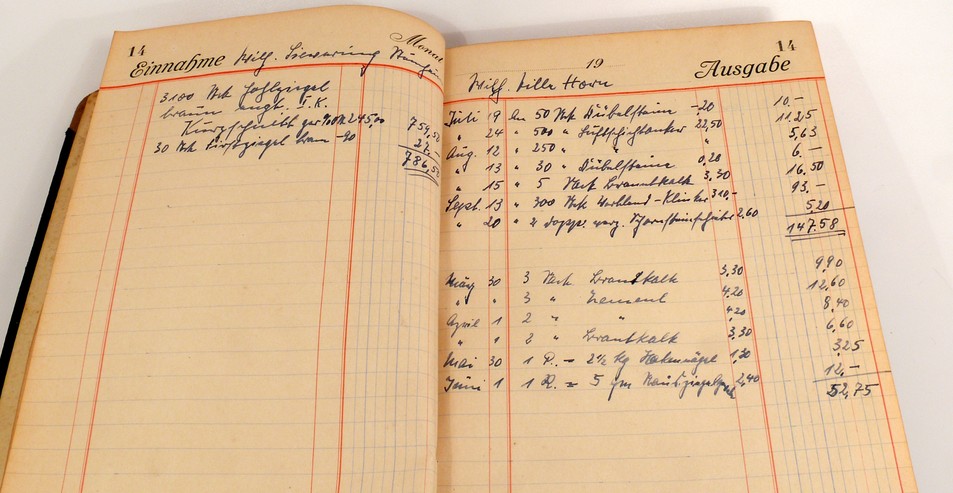 14
Einnahme Wilh. Monat
3100 Stck Hohlziegel
braun engl. I. K.
per ‰ 245,00 759,50
30 Stck Firstziegel braun -90 27,-
786,50
14
19 Ausgabe
Wilh. Wille Horn
Juli 9 An 50 Stck Dübelsteine -,20 10.-
" 24 " 500 " Luftschichtanker 22,50 11,25
Aug. 12 " 250 " " 5,63
" 13 " 30 " Dübelsteine 0,20 6.-
" 15 " 5 Sack Brauntkalk 3,30 16,50
Sept. 13 " 300 Stck Klinker 310,- 93,-
" 20 " 2 dopp. verz. Schornsteinschieber 2,60 5,20
147.58
März 30 3 Sack Brauntkalk 3,30 9,90
" " 3 " Zement 4,20 12,60
April 1 2 " " 4,20 8,40
" 1 2 " Brauntkalk 3,30 6,60
Mai 30 1 P. = 2½ Kg Hakennägel 1,30 3,25
Juni 1 1 R. = 5 qm 2,40 12,-
52,75